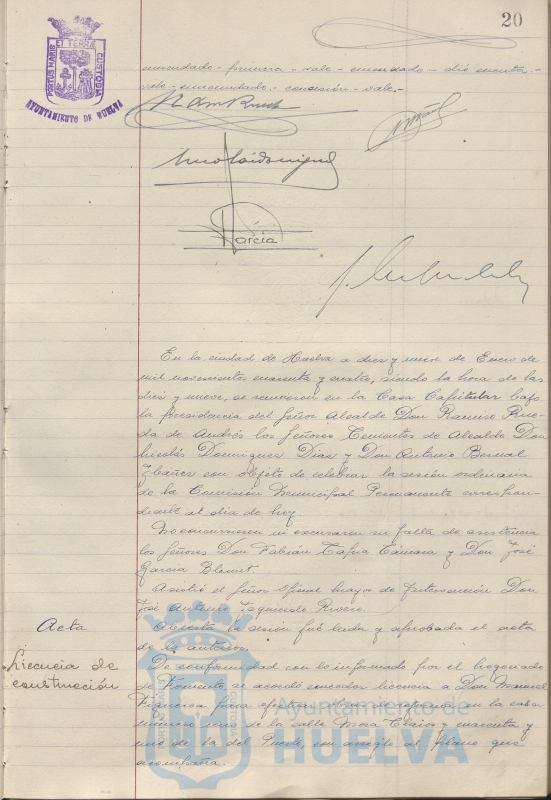 20
PORTUS MARIS ET TERRÆ CUSTODIA
AYUNTAMIENTO DE HUELVA
enmendado - primera - vale - enmendado - dió cuenta -
vale - enmendado - concesión - vale.-
García
En la ciudad de Huelva a diez y nueve de Enero de
mil novecientos cuarenta y cuatro, siendo la hora de las
diez y nueve, se reunieron en la Casa Capitular bajo
la presidencia del Señor Alcalde Don Ramiro Rue-
da de Andrés los Señores Tenientes de Alcalde Don
Nicolás Dominguez Dias y Don Antonio Bernal
Ybañez con objeto de celebrar la sesión ordinaria
de la Comisión Municipal Permanente correspon-
diente al dia de hoy.
No concurrieron ni excusaron su falta de asistencia
los Señores Don Fabián Tapia Cámara y Don José
García
Asistió el Señor Oficial mayor de Intervención Don
José Antonio Izquierdo Rivero.
Acta
Abierta la sesión fué leida y aprobada el acta
de la anterior.
Licencia de
construcción
De conformidad con lo informado por el Negociado
de Fomento se acordó conceder licencia a Don Manuel
Figueroa para efectuar obras de reforma en la casa
número uno de la calle Mora Claros y cuarenta y
uno de la del Puerto, con arreglo al plano que
acompaña.
Ayuntamiento de
HUELVA